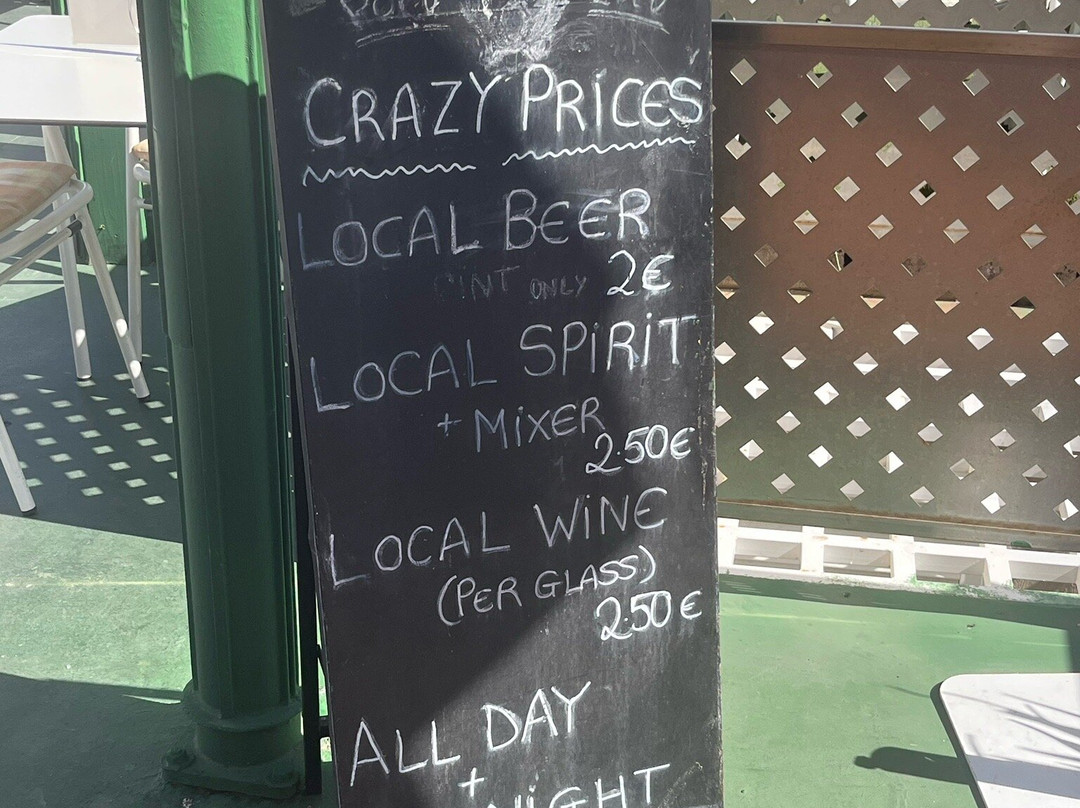 CRAZY PRICES
LOCAL BEER
PINT ONLY 2€
LOCAL SPIRIT
+ MIXER
2.50€
LOCAL WINE
(PER GLASS)
2.50€
ALL DAY
+
NIGHT